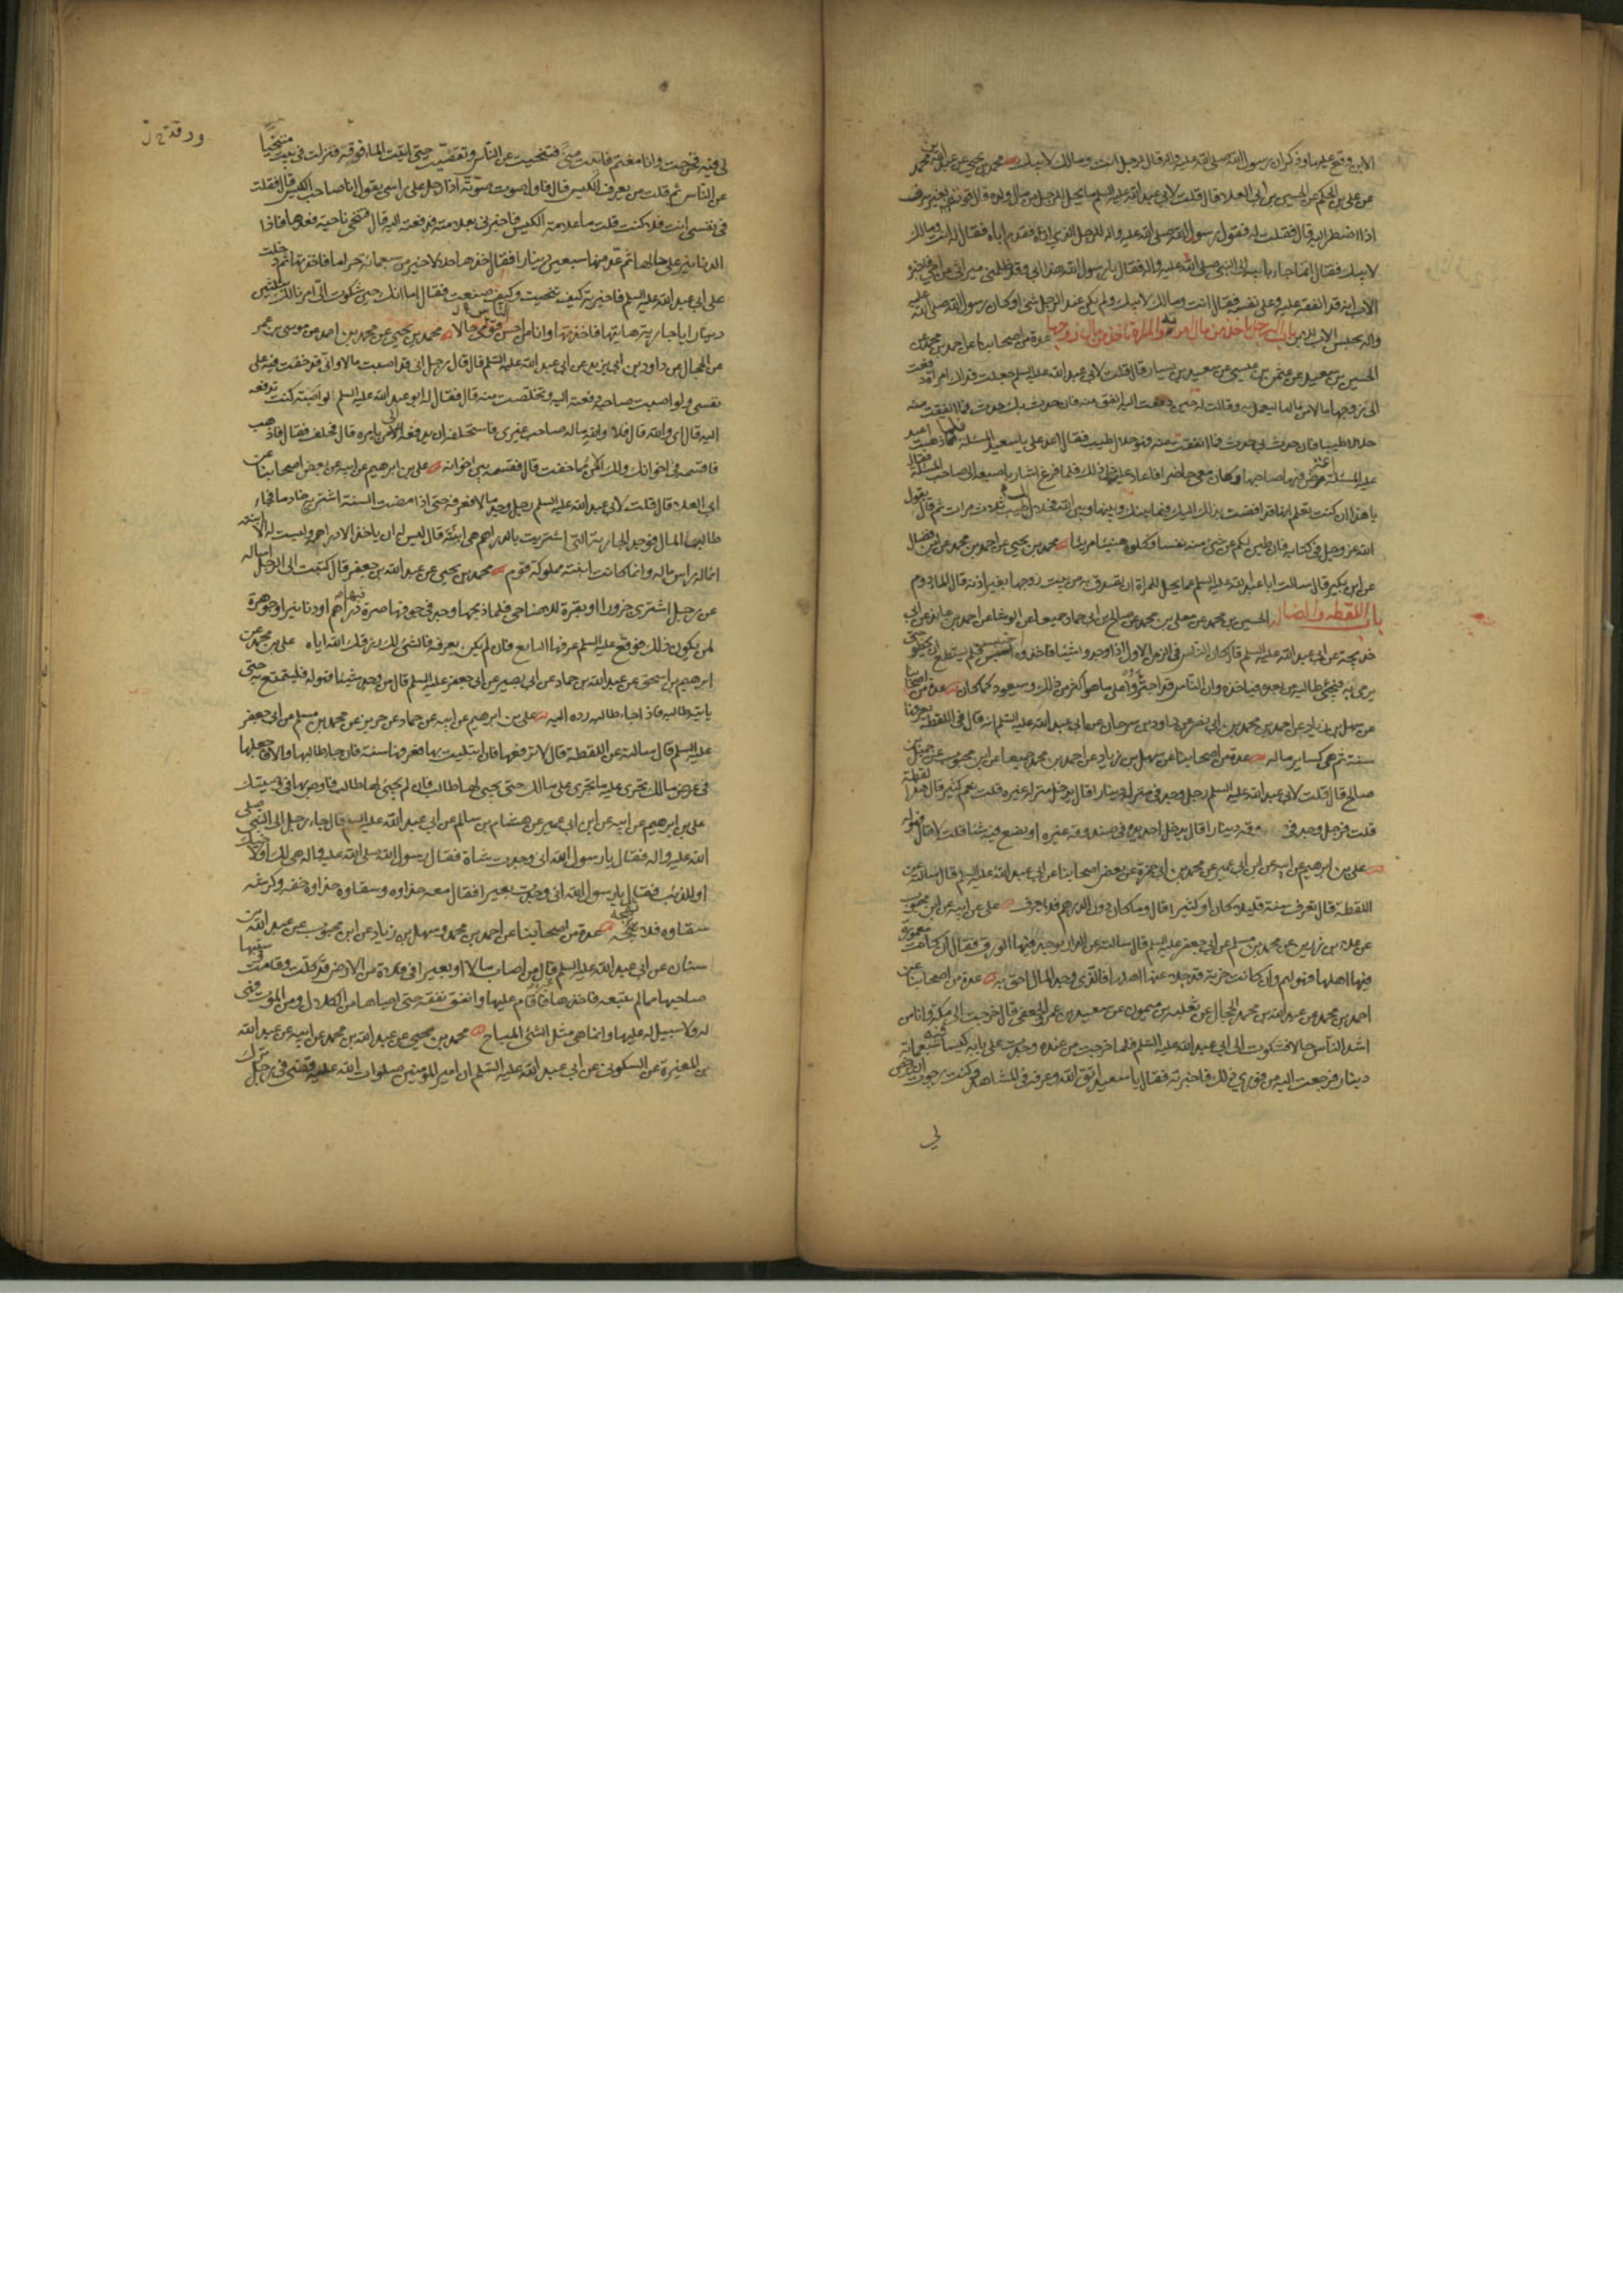 الابن وقع عليها وذكر ان رسول الله صلى الله عليه واله قال لرجل انت ومالك لابيك محمد بن يحيى عن عبد الله بن محمد
عن علي بن الحكم عن الحسين بن ابي العلا قال قلت لابي عبد الله عليه السلم ما يحل للرجل من مال ولده قال قوته بغير سرف
اذا اضطر اليه قال فقلت له فقول رسول الله صلى الله عليه واله للرجل الذي اتاه فقدم اباه فقال له انت ومالك
لابيك فقال انما جاء بابيه الى النبي صلى الله عليه واله فقال يا رسول الله هذا ابي وقد ظلمني ميراثي من امي فاخبره
الاب انه قد انفقه عليه وعلى نفسه فقال انت ومالك لابيك ولم يكن عند الرجل شئ او كان رسول الله صلى الله عليه
واله يحبس الاب للابن باب الرجل ياخذ من مال امرأته والمراة تاخذ من مال زوجها عدة من اصحابنا عن احمد بن محمد عن
الحسين بن سعيد عن عثمن بن عيسى عن سعيد بن يسار قال قلت لابي عبد الله عليه السلم جعلت فداك امراة دفعت
الى زوجها مالا من مالها ليعمل به وقالت له حين دفعت اليه انفق منه فان حدث بك حدث فما انفقت منه
حلالا طيبا فان حدث بي حدث فما انفقت منه فهو حلال طيب فقال اعد علي يا سعيد المسئلة فلما ذهبت اعيد
عليه المسئلة عرض فيها صاحبها وكان معي حاضرا فاعاد عليه مثل ذلك فلما فرغ اشار باصبعه الى صاحب المسئلة فقال
يا هذا ان كنت تعلم انها قد افضت بذلك اليك فيما بينك وبينها وبين الله فحلال طيب ثلاث مرات ثم قال يقول
الله عز وجل في كتابه فان طبن لكم عن شئ منه نفسا فكلوه هنيئا مريئا محمد بن يحيى عن احمد بن محمد عن ابن فضال
عن ابن بكير قال سالت ابا عبد الله عليه السلم عما يحل للمراة ان تصدق به من بيت زوجها بغير اذنه قال المادوم
باب اللقطه والضالة الحسين بن محمد عن معلى بن محمد عن صالح بن ابي حماد جميعا عن الوشا عن احمد بن عائذ عن ابي
خديجة عن ابي عبد الله عليه السلم قال كان الناس في الزمن الاول اذا وجدوا شيئا فاخذوه احتبس فلم يستطع ان يخطو حتى
يرمي به فيجئ طالبه من بعده فياخذه وان الناس قد اجتروا على ما هو اكثر من ذلك وسيعود كما كان عدة من اصحابنا
عن سهل بن زياد عن احمد بن محمد بن ابي نصر عن داود بن سرحان عن ابي عبد الله عليه السلم انه قال في اللقطة يعرفها
سنة ثم هي كساير ماله عدة من اصحابنا عن سهل بن زياد عن احمد بن محمد جميعا عن ابن محبوب عن جميل بن
صالح قال قلت لابي عبد الله عليه السلم رجل وجد في منزله دينارا قال يدخل منزله غيره قلت نعم كثير قال هذا لقطة
قلت فرجل وجد في صندوقه دينارا قال يدخل احد يده في صندوقه غيره او يضع فيه شيئا قلت لا قال فهو له
علي بن ابرهيم عن ابيه عن ابن ابي عمير عن محمد بن ابي حمزة عن بعض اصحابنا عن ابي عبد الله عليه السلم قال سالته عن
اللقطة قال تعرف سنة قليلا كان او كثيرا قال وما كان دون الدرهم فلا يعرف علي عن ابيه عن ابن محبوب
عن علاء بن رزين عن محمد بن مسلم عن ابي جعفر عليه السلم قال سالته عن الدار يوجد فيها الورق فقال ان كانت معمورة
فيها اهلها فهو لهم وان كانت خربة قد جلا عنها اهلها فالذي وجد المال احق به عدة من اصحابنا عن
احمد بن محمد عن عبد الله بن محمد الحجال عن ثعلبة بن ميمون عن سعيد بن عمرو الجعفي قال خرجت الى مكة وانا من
اشد الناس حالا فشكوت الى ابي عبد الله عليه السلم فلما خرجت من عنده وجدت على بابه كيسا فيه سبعمائة
دينار فرجعت اليه من فوري ذلك فاخبرته فقال يا سعيد اتق الله وعرفه في المشاهد وكنت رجوت ان يرخص
لي
لي فيه فخرجت وانا مغتم فاتيت منى فتنحيت عن الناس وتقصيت حتى اتيت الماء فوقة فنزلت في بيت متنحيا
عن الناس ثم قلت من يعرف الكيس قال فاول صوت صوته اذا رجل على راسي يقول انا صاحب الكيس قال فقلت
في نفسي انت فلا كنت قلت ما علامة الكيس فاخبرني بعلامته فدفعته اليه قال فتنحى ناحية فعدها فاذا
الدنانير على حالها ثم عد منها سبعين دينارا فقال خذها حلالا خير من سبعمائة حراما فاخذتها ثم دخلت
على ابي عبد الله عليه السلم فاخبرته كيف تنحيت وكيف صنعت فقال اما انك حين شكوت الي امرنا لك بثلثين
دينارا يا جارية هاتيها فاخذتها وانا من احسن قومي حالا محمد بن يحيى عن محمد بن احمد عن موسى بن عمر
عن الحجال عن داود بن ابي يزيد عن ابي عبد الله عليه السلم قال قال رجل اني قد اصبت مالا واني قد خفت فيه على
نفسي ولو اصبت صاحبه دفعته اليه وتخلصت منه قال فقال له ابو عبد الله عليه السلم لو اصبته كنت تدفعه
اليه قال اي والله قال فلا والله ماله صاحب غيري فاستحلفه ان يدفعه الى من يامره قال فحلف فقال فاذهب
فاقسمه في اخوانك ولك الامن مما خفت قال فقسمه بين اخوانه علي بن ابرهيم عن ابيه عن بعض اصحابنا عن
ابي العلا قال قلت لابي عبد الله عليه السلم رجل وجد مالا فعرفه حتى اذا مضت السنة اشترى خادما فجاء
طالب المال فوجد الجارية التي اشتريت بالدراهم هي ابنته قال ليس له ان ياخذ الا دراهمه وليست له الابنة
انما له راس ماله وانما كانت ابنته مملوكة قوم محمد بن يحيى عن عبد الله بن جعفر قال كتبت الى الرجل اساله
عن رجل اشترى جزورا او بقرة للاضاحي فلما ذبحها وجد في جوفها صرة فيها دراهم او دنانير او جوهرة
لمن يكون ذلك فوقع عليه السلم عرفها البايع فان لم يكن يعرفها فالشئ لك رزقك الله اياه علي بن محمد عن
ابرهيم بن اسحق عن عبد الله بن حماد عن ابي بصير عن ابي جعفر عليه السلم قال من وجد شيئا فهو له فليتمتع به حتى
ياتيه طالبه فاذا جاء طالبه رده اليه علي بن ابرهيم عن ابيه عن حماد عن حريز عن محمد بن مسلم عن ابي جعفر
عليه السلم قال سالته عن اللقطة قال لا ترفعها فان ابتليت بها فعرفها سنة فان جاء طالبها والا فاجعلها
في عرض مالك تجري عليه ما تجري على مالك حتى يجئ لها طالب فان لم يجئ لها طالب فاوص بها في وصيتك
علي بن ابرهيم عن ابيه عن ابن ابي عمير عن هشام بن سالم عن ابي عبد الله عليه السلم قال جاء رجل الى النبي صلى
الله عليه واله فقال يا رسول الله اني وجدت شاة فقال رسول الله صلى الله عليه واله هي لك او لاخيك
او للذئب فقال يا رسول الله اني وجدت بعيرا فقال معه حذاوه وسقاوه حذاوه خفه وكرشه
سقاوه فلا تهجه عدة من اصحابنا عن احمد بن محمد وسهل بن زياد عن ابن محبوب عن عبد الله بن
سنان عن ابي عبد الله عليه السلم قال من اصاب مالا او بعيرا في فلاة من الارض قد كلت وقامت وسيبها
صاحبها مما لم يتبعه فاخذها غيره فاقام عليها وانفق نفقة حتى احياها من الكلال ومن الموت فهي
له ولا سبيل له عليها وانما هي مثل الشئ المباح محمد بن يحيى عن عبد الله بن محمد عن ابيه عن عبد الله
بن المغيرة عن السكوني عن ابي عبد الله عليه السلم ان امير المؤمنين صلوات الله عليه قضى في رجل ترك